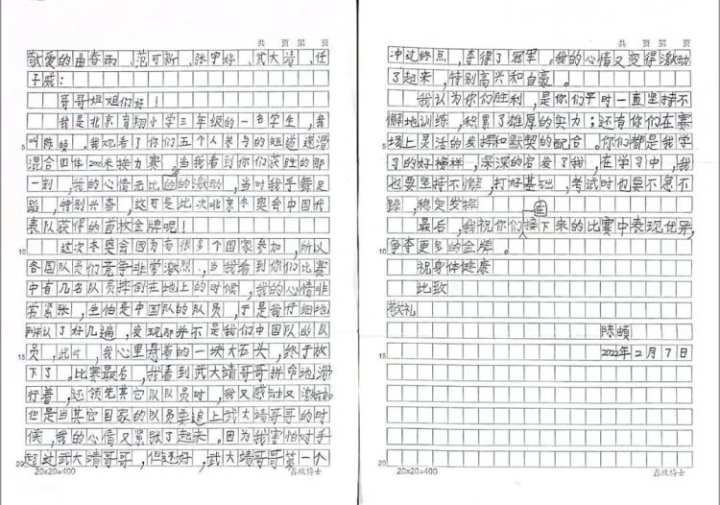 共 页 第 页
敬爱的曲春雨、范可新、张宇婷、武大靖、任
子威：
哥哥姐姐们好！
我是北京育翔小学三年级的一名学生，我
叫陈 。我观看了你们五个人参与的短道速滑
混合团体2000米接力赛，当我看到你们获胜的那
一刻，我的心情无比的激动，当时我手舞足
蹈，特别兴奋，这可是比次北京冬奥会中国代
表队获得的首枚金牌呢！
这次冬奥会因为有很多个国家参加，所以
各国队员们竞争非常激烈，当我看到你们比赛
中有几名队员摔倒在地上的时候，我的心情非
常紧张，生怕是中国队的队员，于是我仔细地
辨认了好几遍，发现那并不是我们中国队的队
员，此时，我心里 着的一块大石头，终于放
下了。比赛最后，我看到武大靖哥哥拼命地滑
行着，还领先其它队队员时，我又感到又激动
但是当其它国家的队员要追上武大靖哥哥的时
候，我的心情又紧张了起来。因为我害怕对手
超过武大靖哥哥，但还好，武大靖哥哥第一个
20×20=400
共 页 第 页
冲过终点，夺得了冠军。我的心情又变得激动
了起来，特别高兴和自豪。
我认为你们的胜利，是你们平时一直坚持不
懈地训练，积累了雄厚的实力；还有你们在赛
场上灵活的发挥和默契的配合。你们都是我学
习的好榜样，深深的启发了我，在学习中，我
也要坚持不懈，打好基础，考试时也要不急不
躁，稳定发挥
最后，我祝你们在接下来的比赛中表现优异，
争夺更多的金牌。
祝身体健康
比致
敬礼
陈
2022年2月7日
20×20=400